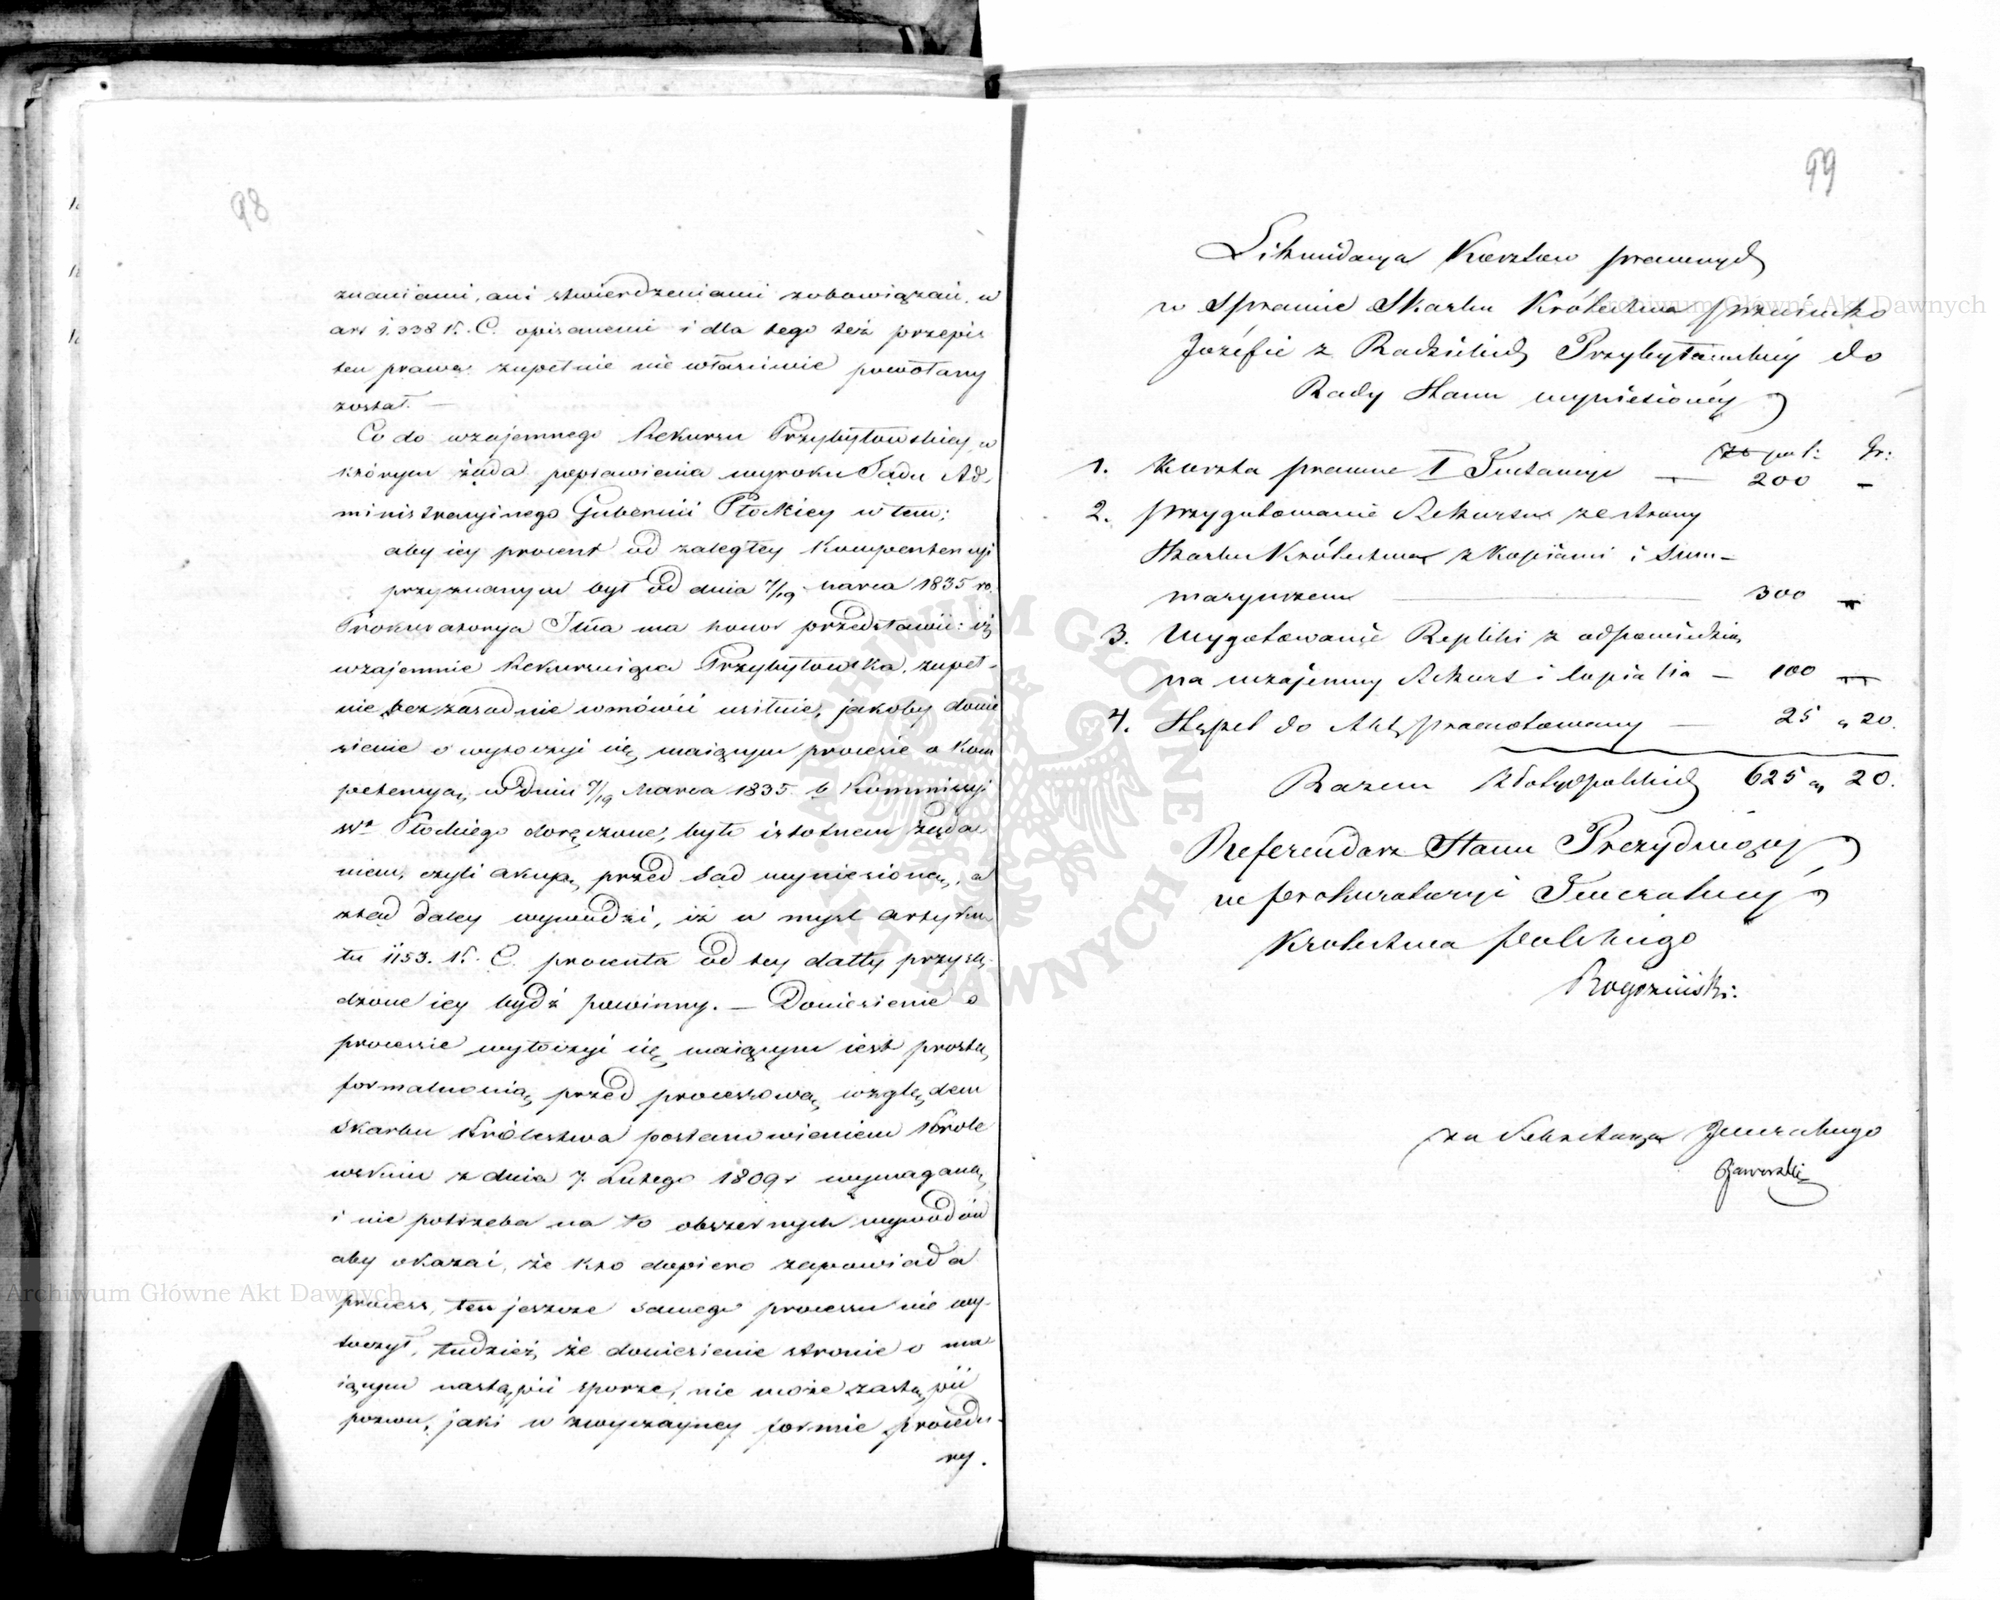 98
znaniami, ani stwierdzeniami zobowiązań, w
art 1.338 K. C. opisanemi i dla tego też przepis
ten prawa zupełnie nie właściwie powołany
został. —
Co do wzajemnego Rekursu Przybyłowskiey, w
którym żąda poprawienia wyroku Sądu Ad-
ministracyjnego Gubernii Płockiey w tem;
aby iey procent od zaległey Kompetencyi
przyznanym był od dnia 7/19 Marca 1835 ro.
Prokuratorya Jlna ma honor przedstawić: iż
wzajemnie Rekursuiąca Przybyłowska, zupeł-
nie bezzasadnie wmówić usiłuie, jakoby donie
sienie o wytoczyć się maiącym procesie o Kom
petencyą, w dniu 7/19 Marca 1835 b Kommissyi
Wa Płockiego doręczone, było istotnem żąda
niem, czyli akcyą przed Sąd wyniesioną, a
ztąd daley wywodzi, iż w myśl artyku
łu 1153. K. C. procenta od tey datty przysą-
dzone iey bydź powinny. — Doniesienie o
processie wytoczyć się maiącym iest prostą
formalnością przed processową, względem
Skarbu Królestwa postanowieniem Króle
wskim z dnia 7. Lutego 1809 r wymaganą
i nie potrzeba na to obszernych wywodów
aby okazać, że kto dopiero zapowiada
process, ten jeszcze samego processu nie wy-
toczył, tudzież, że doniesienie stronie o ma
iącym nastąpić sporze, nie może zastąpić
pozwu, jaki w zwyczayney formie procedu-
ry.
99
Likwidacya Kosztów prawnych
w Sprawie Skarbu Królestwa przeciwko
Józefie z Radzickich Przybyłowskiéy do
Rady Stanu wyniesionéy
pol: Gr:
1. Koszta prawne I Instancyi — 200 -
2. Przygotowanie Rekursu ze strony
Skarbu Królestwa z Kopiami i Sum-
maryuszem — 300 "
3. Wygotowanie Repliki z odpowiedzią
na wzajemny Rekurs i kopialia — 100 "
4. Stępel do Akt prenotowany — 25 " 20.
Razem Złotych polskich 625 " 20.
Referendarz Stanu Prezyduiący
w Prokuratoryi Generalnéy
Królestwa Polskiego
Rogoziński:
za Sekretarza Jeneralnego
Jaworski